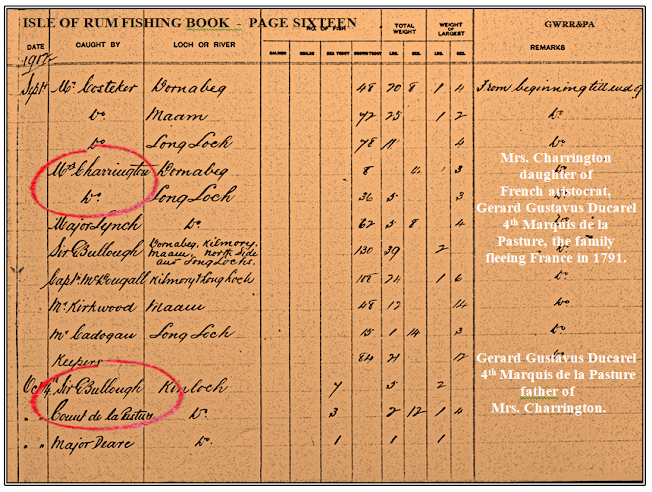 ISLE OF RUM FISHING BOOK - PAGE SIXTEEN GWRR&PA
DATE CAUGHT BY LOCH OR RIVER NO. OF FISH TOTAL WEIGHT WEIGHT OF LARGEST REMARKS
SALMON GRILSE SEA TROUT BROWN TROUT LBS. OZS. LBS. OZS.
Sept Mr Costeker Dornabeg 48 20 8 1 4 From beginning till end of
Do Maam 72 25 1 2 Do
Do Long Loch 78 11 4 Do
Mrs Charrington Dornabeg 8 3
Do Long Loch 36 5 3
Major Lynch Do 62 5 8 4
Sir G Bullough Dornabeg, Kilmory, Maam, North Side and Long Lochs. 130 39 2
Capt McDougall Kilmory & Long Loch 24 1 6 Do
Mr Kirkwood Maam 48 12 14 Do
Mr Cadogan Long Loch 15 1 14 3 Do
Keepers 84 21 12
Oct 4 Sir G Bullough Kinloch 7 5 2
" " Count de la Pasture Do 3 2 12 1 4
" " Major Deare Do 1 1 1
Mrs. Charrington
daughter of
French aristocrat,
Gerard Gustavus Ducarel
4th Marquis de la
Pasture, the family
fleeing France in 1791.
Gerard Gustavus Ducarel
4th Marquis de la Pasture
father of
Mrs. Charrington.